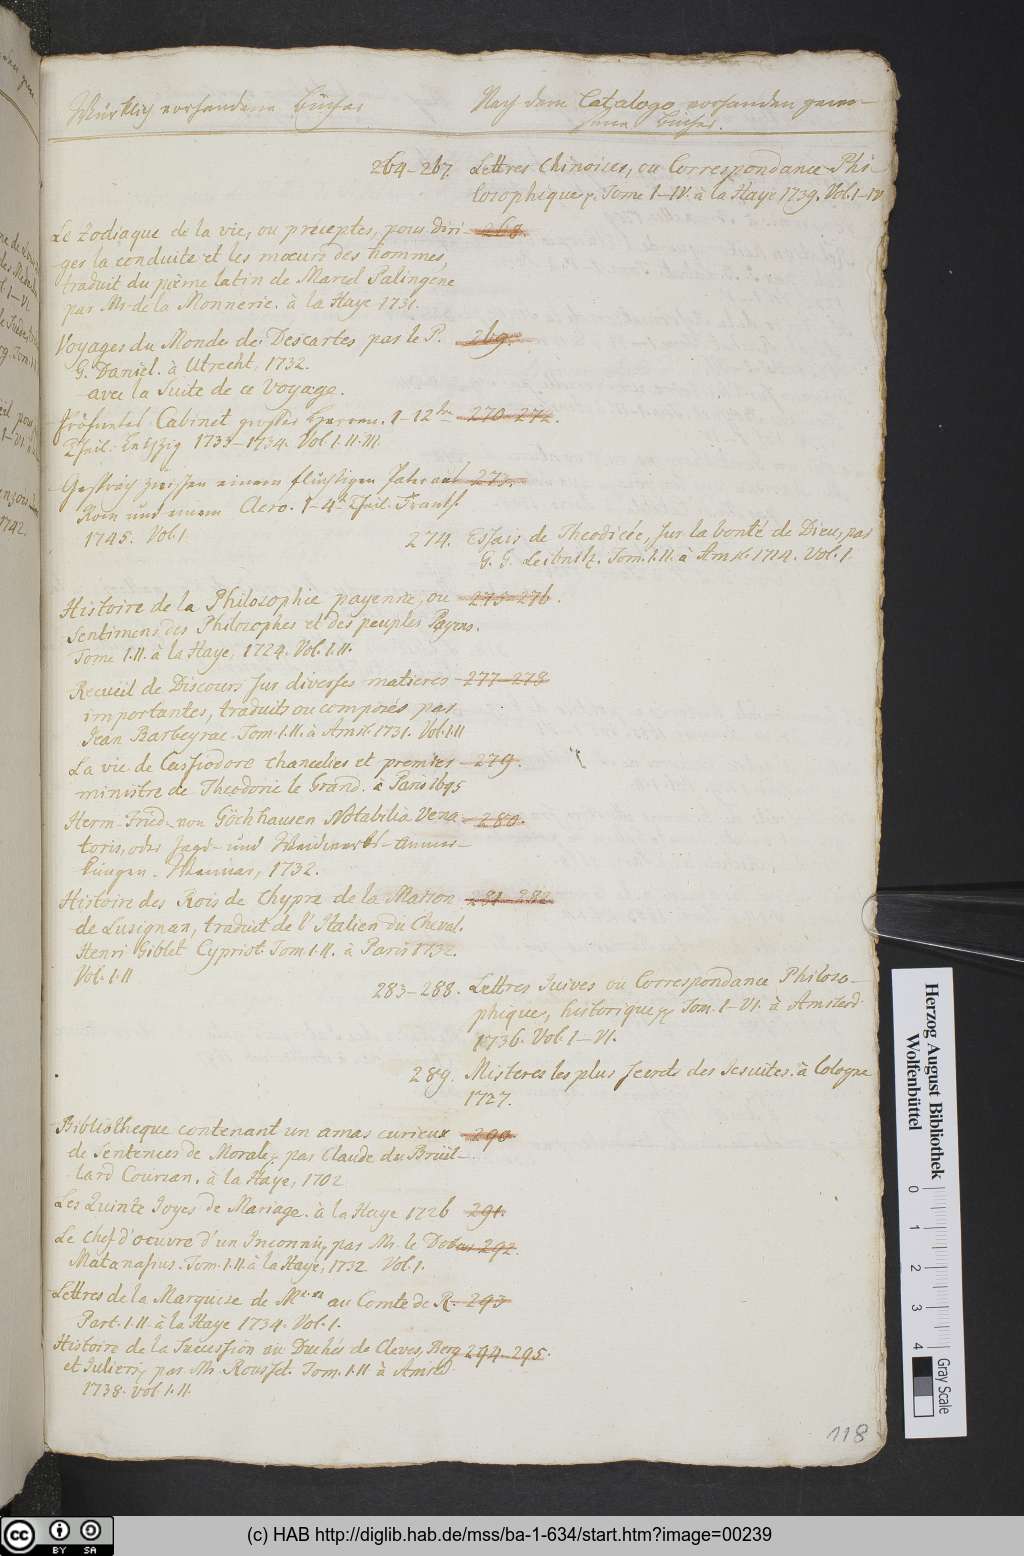 Würklich vorhandene Bücher
Nach dem Catalogo vorhanden gewe-
sene Bücher.
264-267 Lettres Chinoises, ou Correspondance Phi-
losophique. Tome I-IV. à la Haye 1739. Vol. I-IV
Le Zodiaque de la vie, ou préceptes, pour diri- 268.
ges la conduite et les mœurs des hommes,
traduit du pöeme latin de Marcel Palingene
par Mr de la Monnerie. à la Haye 1731.
Voyages du Monde de Descartes par le P. 269.
G. Daniel. à Utrecht, 1732.
avec la Suite de ce Voyage.
Cabinet großer Herren. 1-12 270-272.
Theil. Leipzig 1733-1734. Vol I. II. III.
Gespräch zwischen einem flüchtigen Pater aus 273.
Rom und einem Aero. 1-4 Theil. Franckf.
1745. Vol. 1.
274. Essais de Theodicée, sur la bonté de Dieu, par
G. G. Leibnitz. Tom. I. II. à Amst. 1714. Vol. 1.
Histoire de la Philosophie payenne, ou 275-276.
Sentimens des Philosophes et des peuples Payens.
Tome I. II. à la Haye, 1724. Vol. I. II.
Recueil de Discours sur diverses matieres 277-278
importantes, traduits ou composés par
Jean Barbeyrac. Tom. I. II. à Amst. 1731. Vol. I. II
La vie de Cassiodore chancelies et premier 279.
ministre de Theodoric le Grand. à Paris 1695
Herm. Frid. von Göchhausen Notabilia Vena- 280.
toris, oder Jagd- und Weidwercks-Anmer-
kungen. Weimar, 1732.
Histoire des Rois de Chypre de la Maison 281-282
de Lusignan, traduit de l'Italien du Cheval.
Henri Giblet Cypriot. Tom I. II. à Paris 1732.
Vol. I. II
283-288. Lettres Juives ou Correspondance Philoso-
phique, historique Tom. I-VI. à Amsterd.
1736. Vol. I-VI.
289. Misteres les plus secrets des Jesuites. à Cologne
1727.
Bibliotheque contenant un amas curieux 290
de Sentences de Morale, par Claude du Bruil-
lard Coursan. à la Haye, 1702
Les Quinte Joyes de Mariage. à la Haye 1726 291.
Le Chef d'oeuvre d'un Inconnu, par Mr. le Docteur 292.
Matanasius. Tom. I. II. à la Haye, 1732 Vol. 1.
Lettres de la Marquise de M. au Comte de R. 293
Part. I. II. à la Haye 1734. Vol. 1.
Histoire de la Succession au Duchés de Cleves, Berg 294-295.
et Juliers, par Mr. Rousset. Tom. I. II. à Amsted
1738. vol. I. II.
118
Herzog August Bibliothek
Wolfenbüttel
0 1 2 3 4
Gray Scale
cc BY SA
(c) HAB http://diglib.hab.de/mss/ba-1-634/start.htm?image=00239